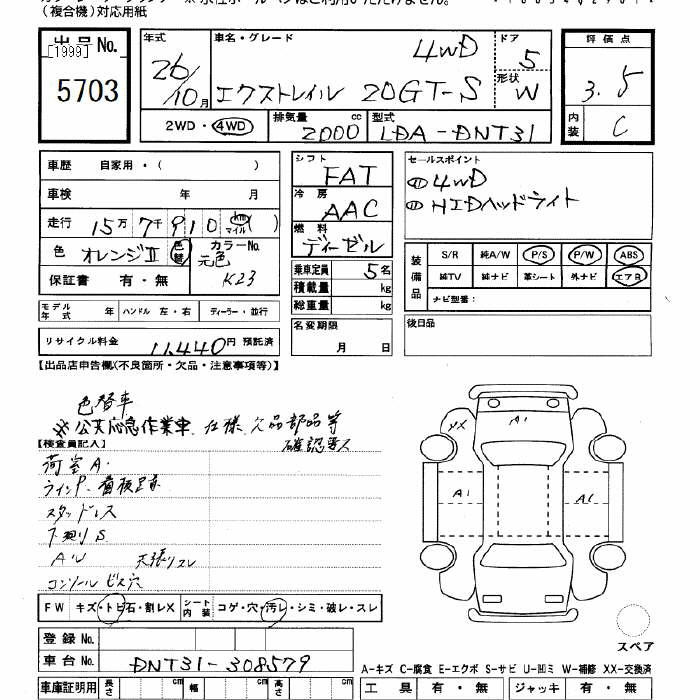 (複合機)対応用紙
出品No.
[1999]
5703
年式
26/10月
車名・グレード
4WD
エクストレイル 20GT-S
ドア
5
形状
W
評価点
3.5
内装
C
2WD・4WD
排気量
2000 cc
型式
LDA-DNT31
車歴 自家用・( )
車検 年 月
走行 15万7千910 km マイル ( )
色 オレンジⅡ 色替 カラーNo. 元色 K23
保証書 有・無
シフト
FAT
冷房
AAC
燃料
ディーゼル
乗車定員 5名
積載量 kg
総重量 kg
セールスポイント
① 4WD
① HIDヘッドライト
装備品
S/R 純A/W P/S P/W ABS
純TV 純ナビ 革シート 外ナビ エアB
ナビ型番:
モデル年式 年 ハンドル 左・右 ディーラー・並行
リサイクル料金 11,440円 預託済
名変期限
月 日
後日品
【出品店申告欄(不良箇所・欠品・注意事項等)】
色替車
公共応急作業車 仕様 欠品部品等
確認導入
【検査員記入】
荷室A
スタッドレス
下廻りS
AW 天張りスレ
コンソール ビス穴
A1
A1
A1
FW キズ・トビ石・割レX シート内装 コゲ・穴・汚レ・シミ・破レ・スレ
登録No.
車台No. DNT31-308579
スペア
A-キズ C-腐食 E-エクボ S-サビ U-凹ミ W-補修 XX-交換済
車庫証明用 長さ cm 幅 cm 高さ cm
工具 有・無 ジャッキ 有・無